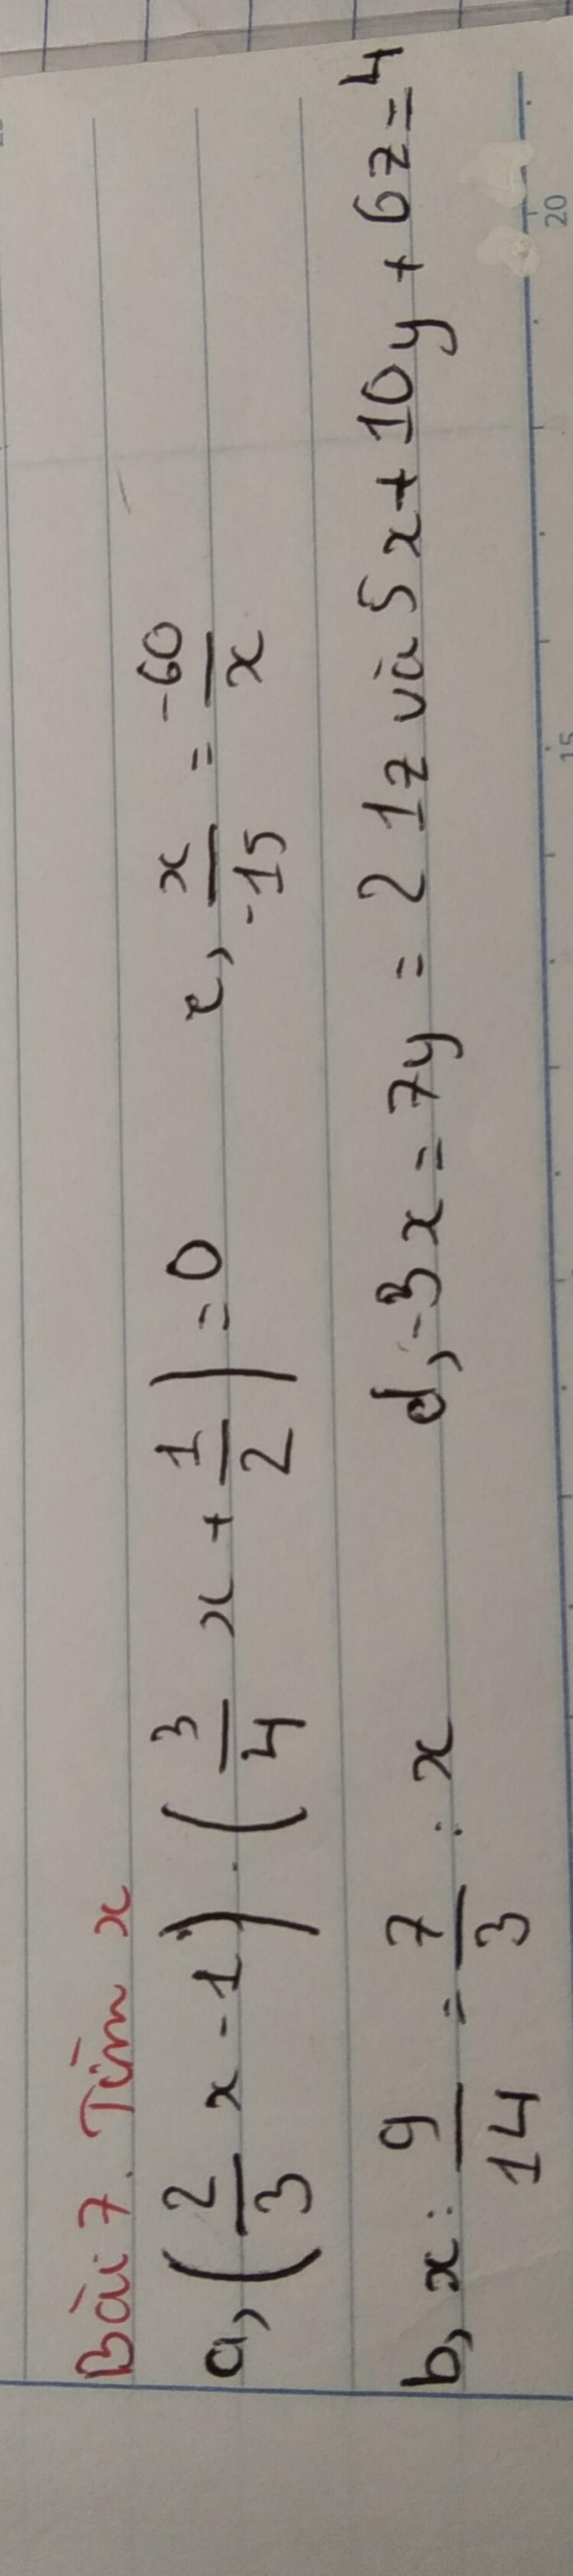 Bài 7. Tìm x
a, (2/3 x - 1) . (3/4 x + 1/2) = 0 c, x/-15 = -60/x
b, x : 9/14 = 7/3 : x d, -3x = 7y = 21z và 5x + 10y + 6z = 4
20
15